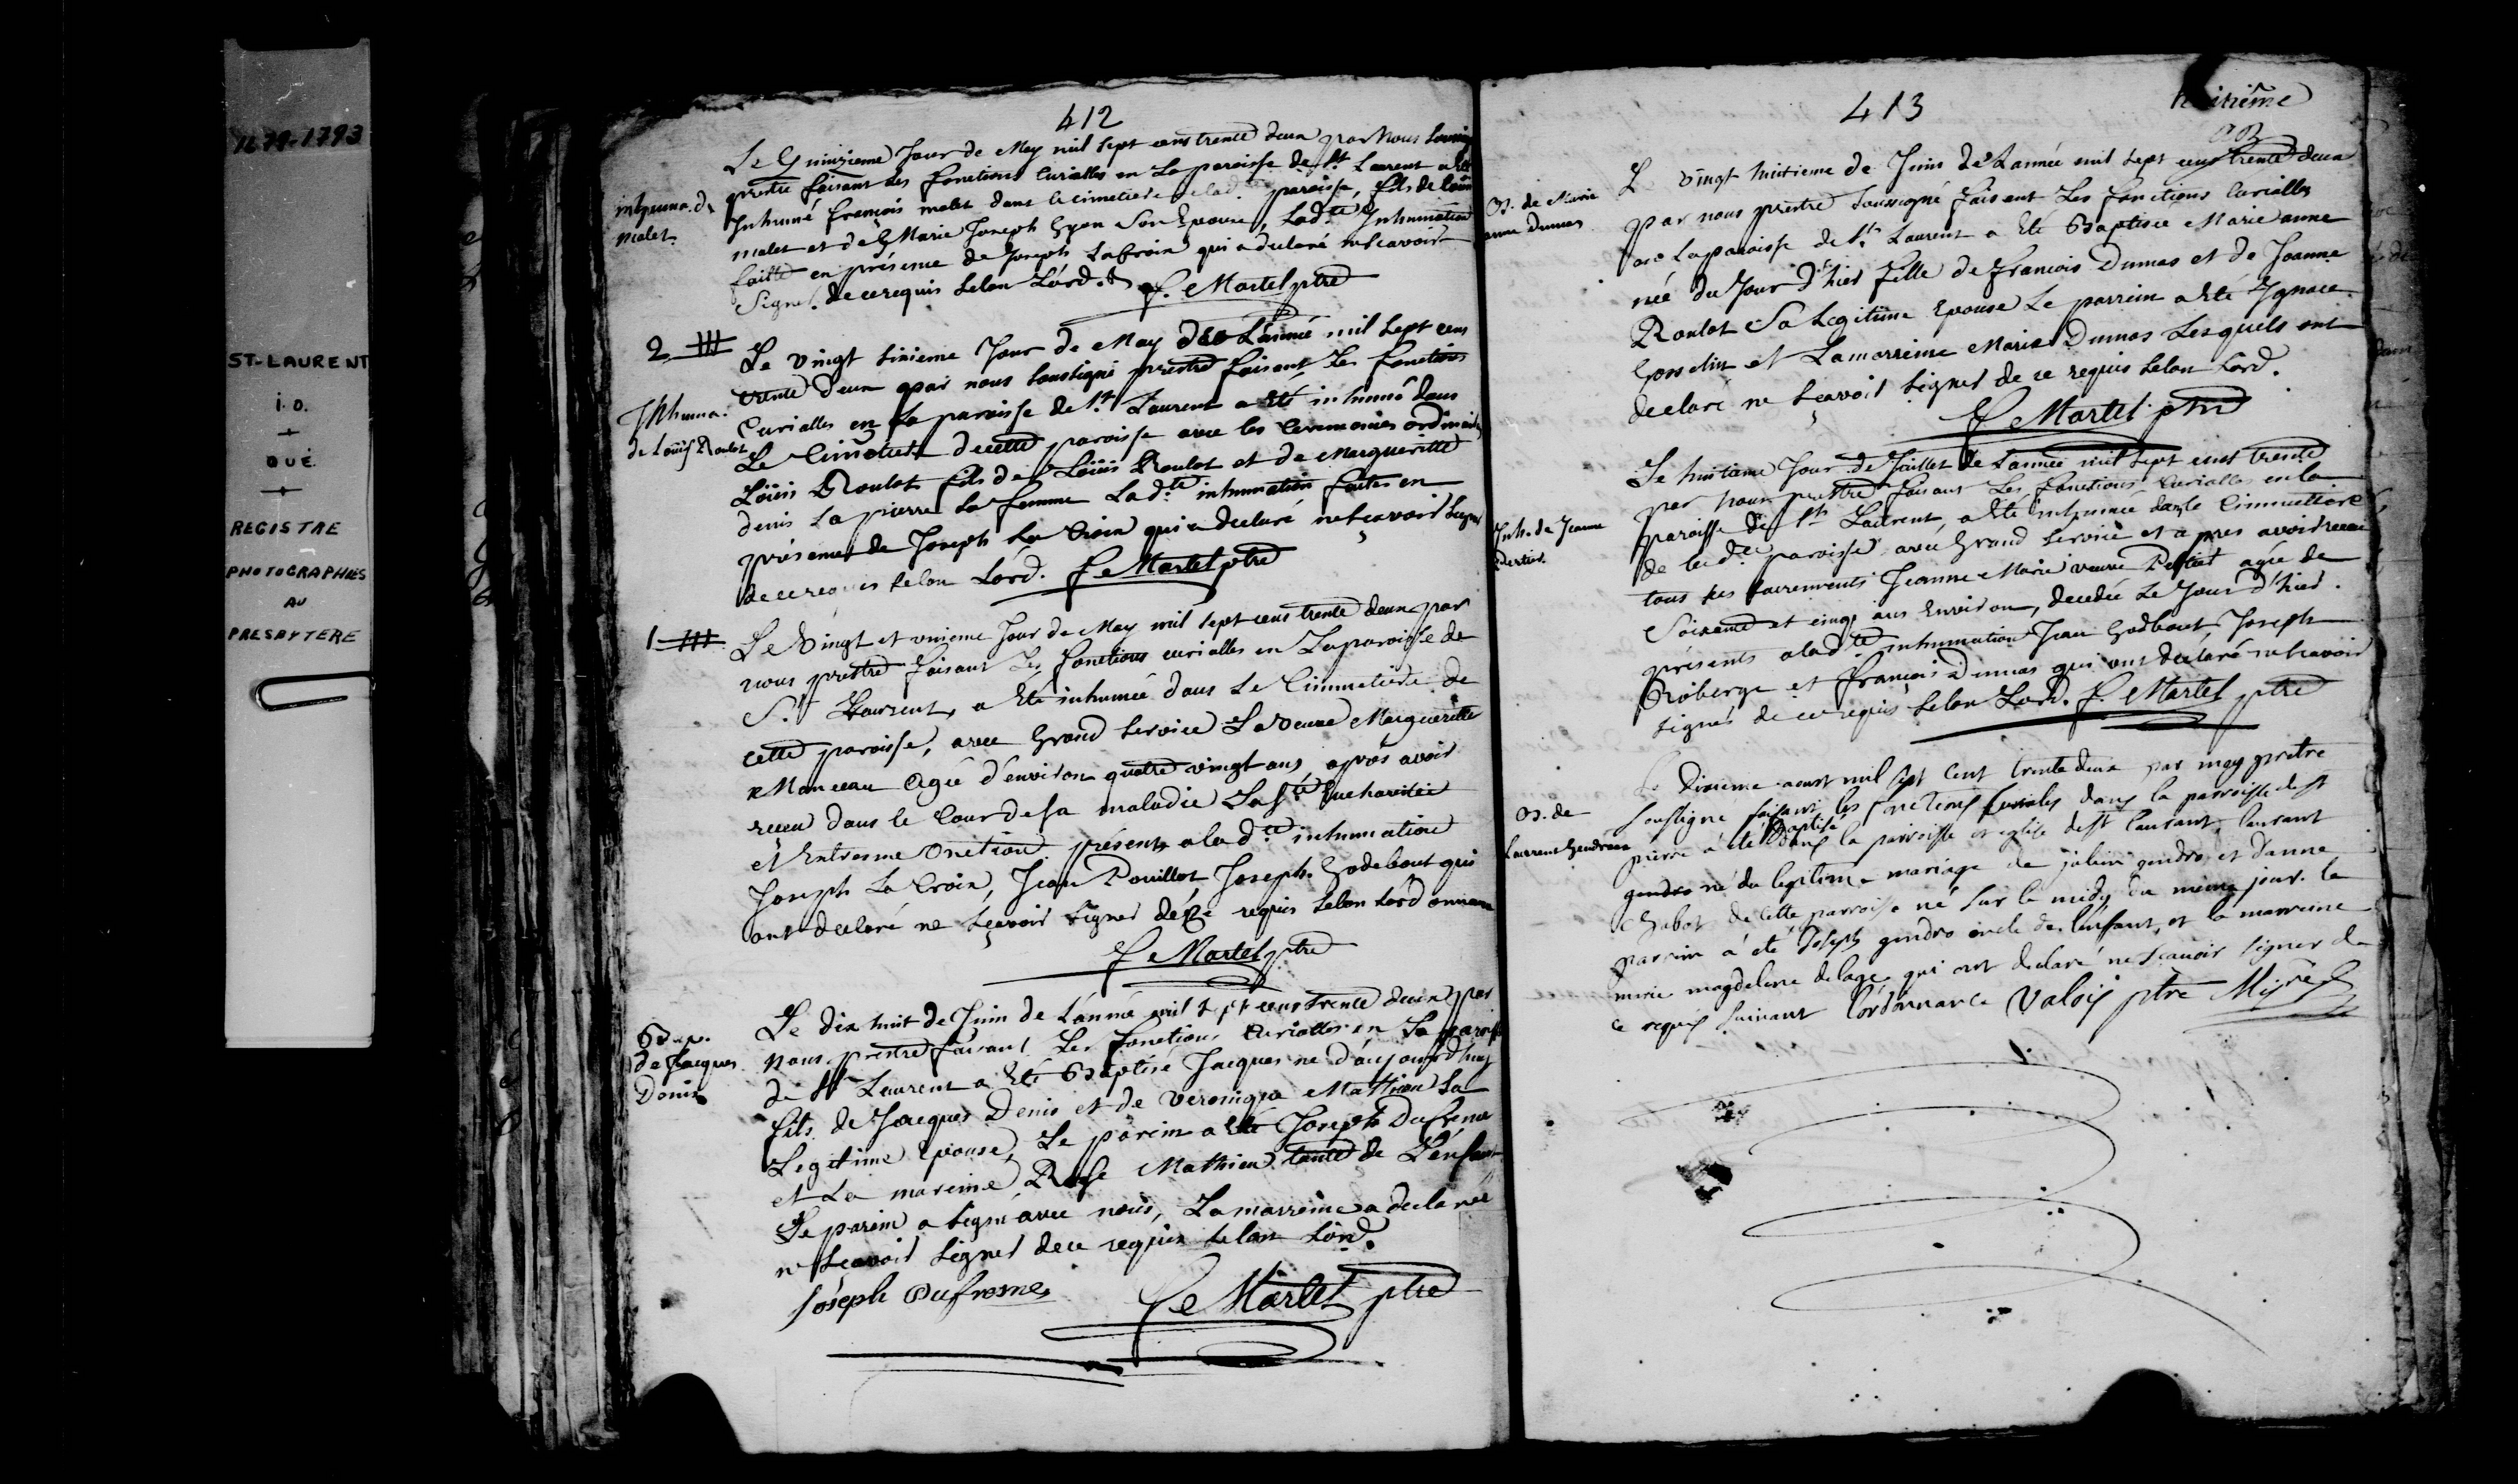 1679-1793
ST-LAURENT
I.O.
QUÉ.
REGISTRE
PHOTOGRAPHIÉS
AU
PRESBYTERE
412
Le Quinzieme Jour de May mil sept cens trente deux par Nous
prestre faisant les fonctions Curialles en La paroisse de St Laurent a Eté
Inhumé françois malet dans le cimetiere de lad paroisse, fils de Louis
malet et de Marie Joseph Gyon Son Epouse, Lad.te Inhumation
faitte en présence de Joseph Lacroix qui a declaré ne scavoir
Signer. de ce requis selon L'ord. f. Martel ptre
inhuma. de
Malet.
2
Le vingt sixieme Jour de May de L'année mil sept cens
trente deux par nous soussigné prestre faisant les fonctions
Curialles en La paroisse de St Laurent a Eté inhumé dans
Le Cimetiere de cette paroisse avec les Ceremonies ordinaires
Loüis Roulot fils de Loüis Roulot et de Margueritte
denis La pierre Sa femme Lad.te inhumation faites en
présence de Joseph La Croix qui a declaré ne scavoir signer
de ce requis selon L'ord. f. Martel ptre
Inhuma.
de Loüis Roulot
1
Le Vingt et unieme Jour de May mil sept cens trente deux par
nous prestre faisant Les fonctions curialles en La paroisse de
St Laurent, a Eté inhumée dans Le Cimmetiere de
cette paroisse, avec Grand service La veuve Margueritte
Manceau agée d'environ quatre vingt ans après avoir
receu dans le Cour de sa maladie La Ste Eucharistie
et Extresme Onction présents a lad.te inhumation
Joseph La Croix, Jean Pouillot Joseph Godebout qui
ont declaré ne sçavoir signer de ce requis selon Lord onnance
f. Martel ptre
Le dix huit de Juin de L'année mil sept cens trente deux par
nous prestre faisant Les fonctions Curialles en La paroisse
de St Laurent a Eté Baptisé Jacques né d'aujourd'huy
fils de Jacques Denis et de Veronique Mathieu Sa
Legitime Epouse, Le parein a Eté Joseph Dufrene
et La mareine Rose Mathieu tante de L'enfant
Le parein a signé avec nous, La marreine a declaré
ne sçavoir signer de ce requis selon Lord.
Joseph Dufresne f. Martel ptre
Bap.
de Jacques
Denis
413
huitième
L vingt huitieme de Juin de L'année mil sept cens trente deux
par nous prestre soussigné faisant Les fonctions Curialles
en La paroisse de St Laurent a Eté Baptisée Marie anne
née du Jour d'hier fille de francois Dumas et de Joanne
Roulot Sa Legitime Epouse Le parrein a Eté Ignace
Gosselin et La marreine Marie Dumas Lesquels ont
declaré ne sçavoir signer de ce requis selon Lord.
f. Martel ptre
B. de Marie
anne Dumas
Le huitième Jour de Juillet de L'année mil sept cens trente
par nous prestre faisant Les fonctions Curialles en la
paroisse de St Laurent, a Eté inhumée dans le Cimmettiere
de lad.te paroisse avec Grand service et apres avoir receu
tous ses sacrements Jeanne Marie veuve agée de
Soixante et cinq ans Environ, decedée Le Jour d'hier.
présents a lad.te inhumation Jean Godbout Joseph
Roberge et françois Dumas qui ont declaré ne scavoir
signer de ce requis selon Lord. f. Martel ptre
Inh. de Jeanne
Le Dixieme aoust mil sept cent trente deux par moy pretre
soussigné faisant les fonctions curiales dans la parroisse de st
pierre a été baptisé dans la parroisse et eglise de st laurent laurent
gendro né du legitime mariage de gendro et d'anne
Chabot de cette parroisse né sur le midy du même jour. le
parrein a été Joseph gendro oncle de l'enfant, et la marreine
marie magdelene delage qui ont declaré ne scavoir signer de
ce requis suivant l'ordonnance Valois ptre Misre
B. de
Laurent Gendreau